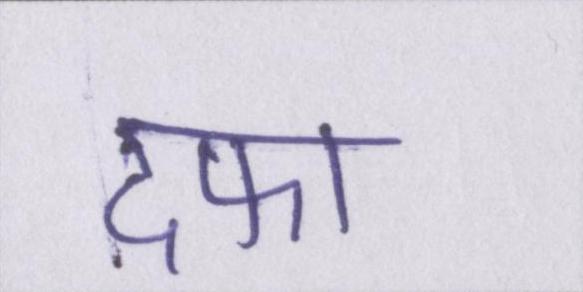 दफा